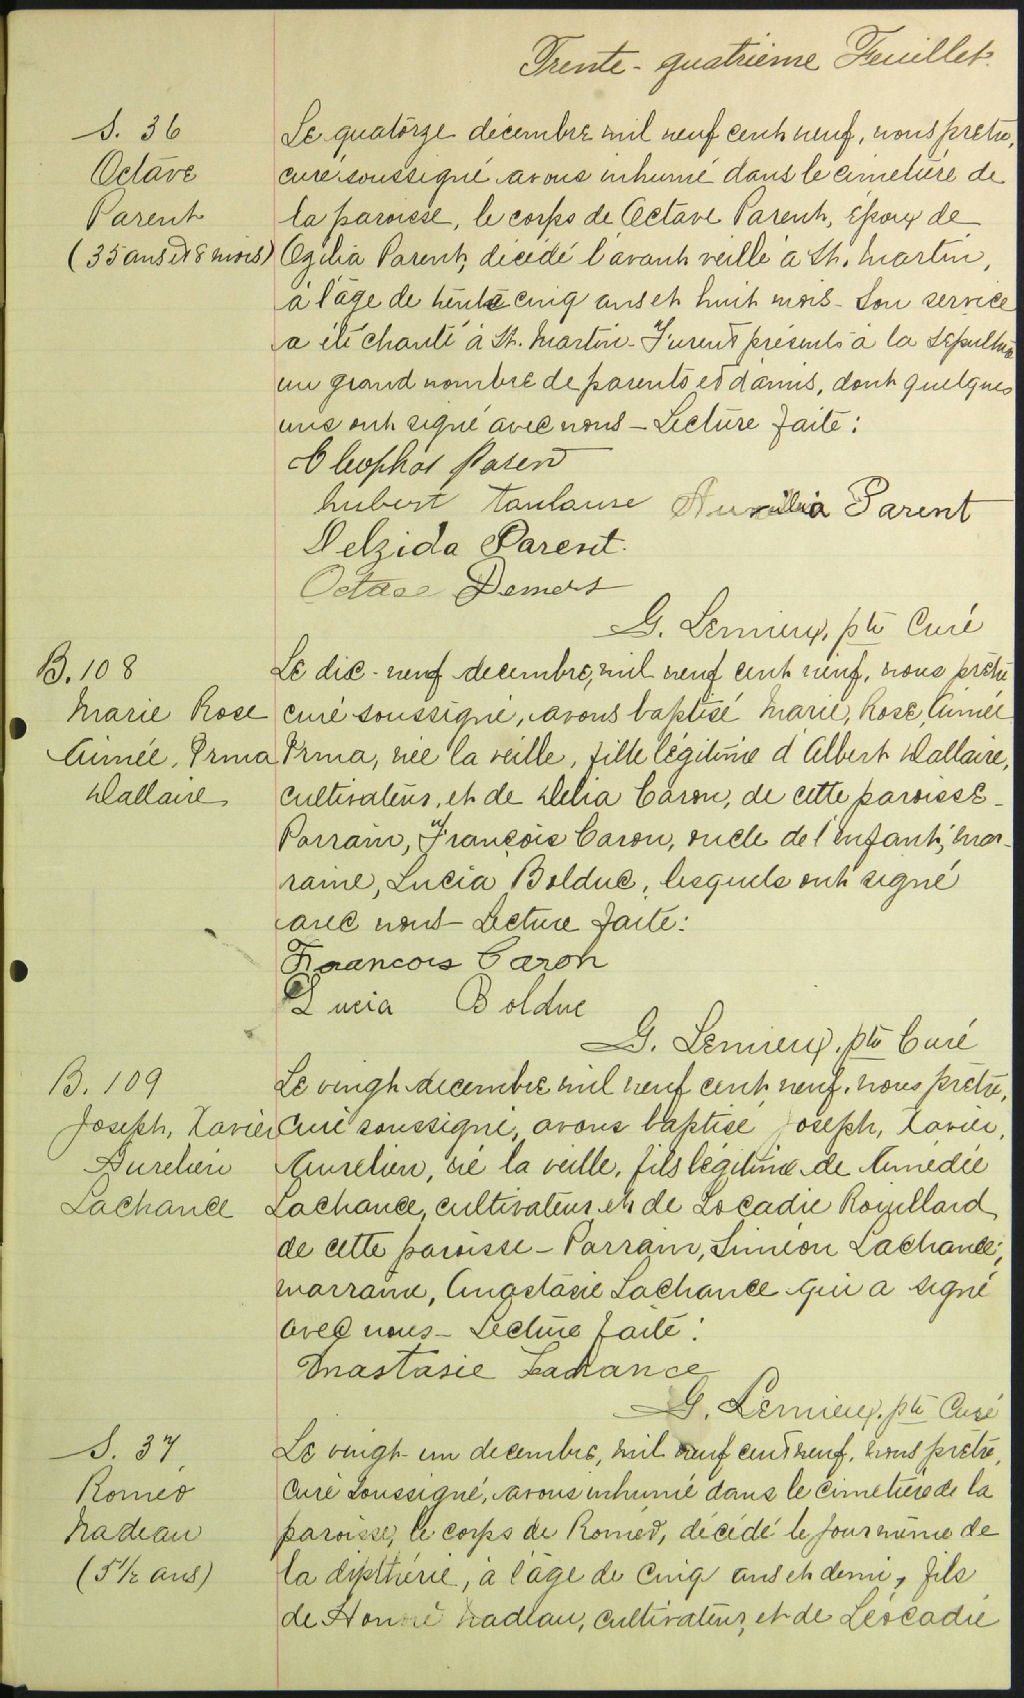 Trente-quatrième Feuillet.
S. 36
Octave
Parent
(35 ans et 8 mois)
Le quatorze décembre mil neuf cent neuf, nous prêtre,
curé soussigné avons inhumé dans le cimetière de
la paroisse, le corps de Octave Parent, époux de
Ozilia Parent, décédé l'avant veille à St. Martin,
à l'âge de trente cinq ans et huit mois - Son service
a été chanté à St. Martin - Furent présents à la sépulture
un grand nombre de parents et d'amis, dont quelques
uns ont signé avec nous - Lecture faite:
Cleophas Parent
hubert Toulouse Parent
Delzida Parent.
Octave Demers
G. Lemieux, ptre Curé
B. 108
Marie Rose
Aimée, Irma
Dallaire
Le dix-neuf decembre, mil neuf cent neuf, nous prêtre
curé soussigné, avons baptisé Marie, Rose, Aimée
Irma, née la veille, fille légitime d'Albert Dallaire,
cultivateur, et de Delia Caron, de cette paroisse -
Parrain, François Caron, oncle de l'enfant; mar-
raine, Lucia Bolduc, lesquels ont signé
avec nous - Lecture faite:
Francois Caron
Lucia Bolduc
G. Lemieux, ptre Curé
B. 109
Joseph, Xavier
Aurelien
Lachance
Le vingt decembre mil neuf cent neuf, nous prêtre,
curé soussigné, avons baptisé Joseph, Xavier,
Aurelien, né la veille, fils légitime de Amédée
Lachance, cultivateur et de Locadie Rouillard,
de cette paroisse - Parrain, Siméon Lachance;
marraine, Anastasie Lachance qui a signé
avec nous - Lecture faite:
Anastasie Lachance
G. Lemieux, ptre Curé
S. 37
Roméo
Nadeau
(5 1/2 ans)
Le vingt-un decembre, mil neuf cent neuf, nous prêtre,
curé soussigné, avons inhumé dans le cimetière de la
paroisse, le corps de Roméo, décédé le jour même de
la dipthérie, à l'âge de cinq ans et demi, fils
de Honoré Nadeau, cultivateur, et de Léocadie